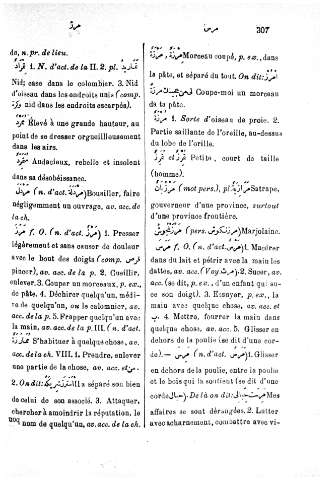 مرز
مرس
307
de, n. pr. de lieu.
1. N. d'act. de la II. 2. pl.
Nid; case dans le colombier. 3. Nid
d'oiseau dans les endroits unis (comp.
nid dans les endroits escarpés).
Élevé à une grande hauteur, au
point de se dresser orgueilleusement
dans les airs.
Audacieux, rebelle et insolent
dans sa désobéissance.
(n. d'act. ) Bousiller, faire
négligemment un ouvrage, av. acc. de
la ch.
f. O. (n. d'act. ) 1. Presser
légèrement et sans causer de douleur
avec le bout des doigts (comp. قرص
pincer), av. acc. de la p. 2. Cueillir,
enlever. 3. Couper un morceau, p. ex.,
de pâte. 4. Déchirer quelqu'un, médi-
re de quelqu'un, ou le calomnier, av.
acc. de la p. 5. Frapper quelqu'un avec
la main, av. acc. de la p. III. (n. d'act.
) S'habituer à quelque chose, av.
acc. de la ch. VIII. 1. Prendre, enlever
une partie de la chose, av. acc. et من.
2. On dit: Il a séparé son bien
de celui de son associé. 3. Attaquer,
chercher à amoindrir la réputation, le
bon nom de quelqu'un, av. acc. de la ch.
Morceau coupé, p. ex., dans
la pâte, et séparé du tout. On dit:
Coupe-moi un morceau
de ta pâte.
1. Sorte d'oiseau de proie. 2.
Partie saillante de l'oreille, au-dessus
du lobe de l'oreille.
et Petite, court de taille
(homme).
(mot pers.), pl. Satrape,
gouverneur d'une province, surtout
d'une province frontière.
(pers. ) Marjolaine.
f. O. (n. d'act. ) 1. Macérer
dans du lait et pétrir avec la main les
dattes, av. acc. (Voy. مرث). 2. Sucer, av.
acc. (se dit, p. ex., d'un enfant qui su-
ce son doigt). 3. Essuyer, p. ex., la
main avec quelque chose, av. acc. et
ب. 4. Mettre, fourrer la main dans
quelque chose, av. acc. 5. Glisser en
dehors de la poulie (se dit d'une cor-
de). — (n. d'act. ) 1. Glisser
en dehors de la poulie, entre la poulie
et le bois qui la soutient (se dit d'une
corde). De là on dit: Mes
affaires se sont dérangées. 2. Lutter
avec acharnement, combattre avec vi-